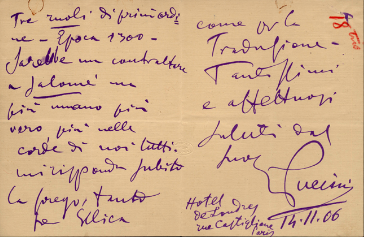 Tre ruoli di primordi
ne - Epoca 1300 -
Sarebbe un contraltare
a Salomé ma
più umano più
vero più nelle
corde di noi tutti.
mi risponda subito
la prego, tanto
per Illica
come per la
Traduzione -
Tantissimi
e affettuosi
saluti dal
suo
Puccini
Hotel
de Londres
rue Castiglione
Paris
14.11.06
18